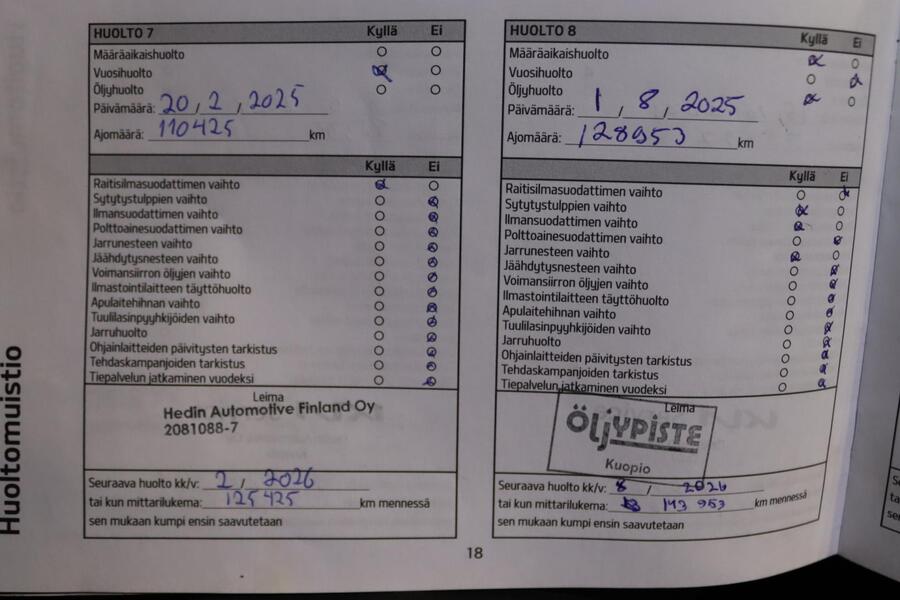 HUOLTO 7 Kyllä Ei
Määräaikaishuolto
Vuosihuolto
Öljyhuolto
Päivämäärä: 20 / 2 / 2025
Ajomäärä: 110425 km
Kyllä Ei
Raitisilmasuodattimen vaihto
Sytytystulppien vaihto
Ilmansuodattimen vaihto
Polttoainesuodattimen vaihto
Jarrunesteen vaihto
Jäähdytysnesteen vaihto
Voimansiirron öljyjen vaihto
Ilmastointilaitteen täyttöhuolto
Apulaitehihnan vaihto
Tuulilasinpyyhkijöiden vaihto
Jarruhuolto
Ohjainlaitteiden päivitysten tarkistus
Tehdaskampanjoiden tarkistus
Tiepalvelun jatkaminen vuodeksi
Leima
Hedin Automotive Finland Oy
2081088-7
Seuraava huolto kk/v: 2 / 2026
tai kun mittarilukema: 125425 km mennessä
sen mukaan kumpi ensin saavutetaan
HUOLTO 8 Kyllä Ei
Määräaikaishuolto
Vuosihuolto
Öljyhuolto
Päivämäärä: 1 / 8 / 2025
Ajomäärä: 128953 km
Kyllä Ei
Raitisilmasuodattimen vaihto
Sytytystulppien vaihto
Ilmansuodattimen vaihto
Polttoainesuodattimen vaihto
Jarrunesteen vaihto
Jäähdytysnesteen vaihto
Voimansiirron öljyjen vaihto
Ilmastointilaitteen täyttöhuolto
Apulaitehihnan vaihto
Tuulilasinpyyhkijöiden vaihto
Jarruhuolto
Ohjainlaitteiden päivitysten tarkistus
Tehdaskampanjoiden tarkistus
Tiepalvelun jatkaminen vuodeksi
Leima
ÖLJYPISTE
Kuopio
Seuraava huolto kk/v: 8 / 2026
tai kun mittarilukema: 143 953 km mennessä
sen mukaan kumpi ensin saavutetaan
Huoltomuistio
18